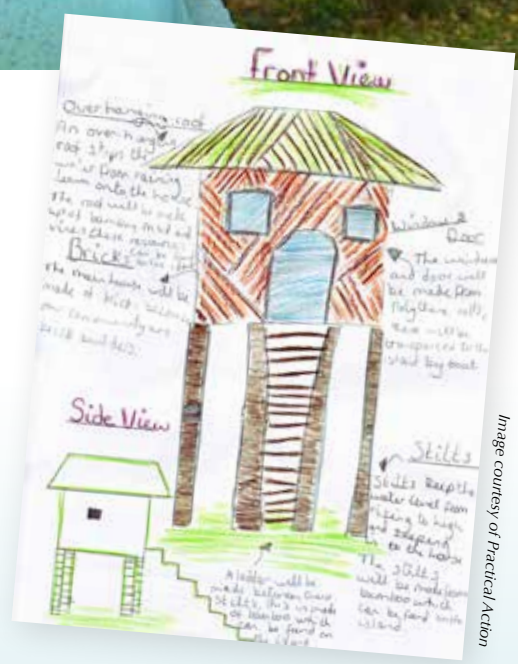 Front View
Overhanging roof
An overhanging
roof stops the
water from raining
down onto the house
The roof will be made
out of bamboo and
vines these resources
can be
Bricks
The main house will be
made of bricks because
our community are
brick builders.
Windows &
Door
The windows
and door will
be made from
Polythene rolls,
these will be
transported to the
island by boat
Side View
Stilts
Stilts keep the
water level from
rising to high
and
on the house
The stilts
will be made from
bamboo which
can be found on the
island.
A ladder will be
made between two
stilts, this is made
of bamboo which
can be found on
the island
Image courtesy of Practical Action